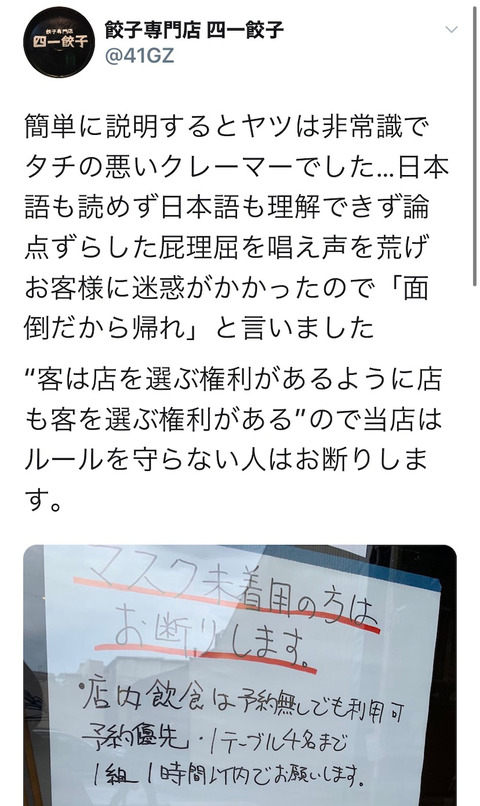 餃子専門店
四一餃子
餃子専門店 四一餃子
@41GZ
簡単に説明するとヤツは非常識で
タチの悪いクレーマーでした…日本
語も読めず日本語も理解できず論
点ずらした屁理屈を唱え声を荒げ
お客様に迷惑がかかったので「面
倒だから帰れ」と言いました
"客は店を選ぶ権利があるように店
も客を選ぶ権利がある"ので当店は
ルールを守らない人はお断りしま
す。
マスク未着用の方は
お断りします。
・店内飲食は予約無しでも利用可
予約優先・1テーブル4名まで
1組 1時間以内でお願いします。